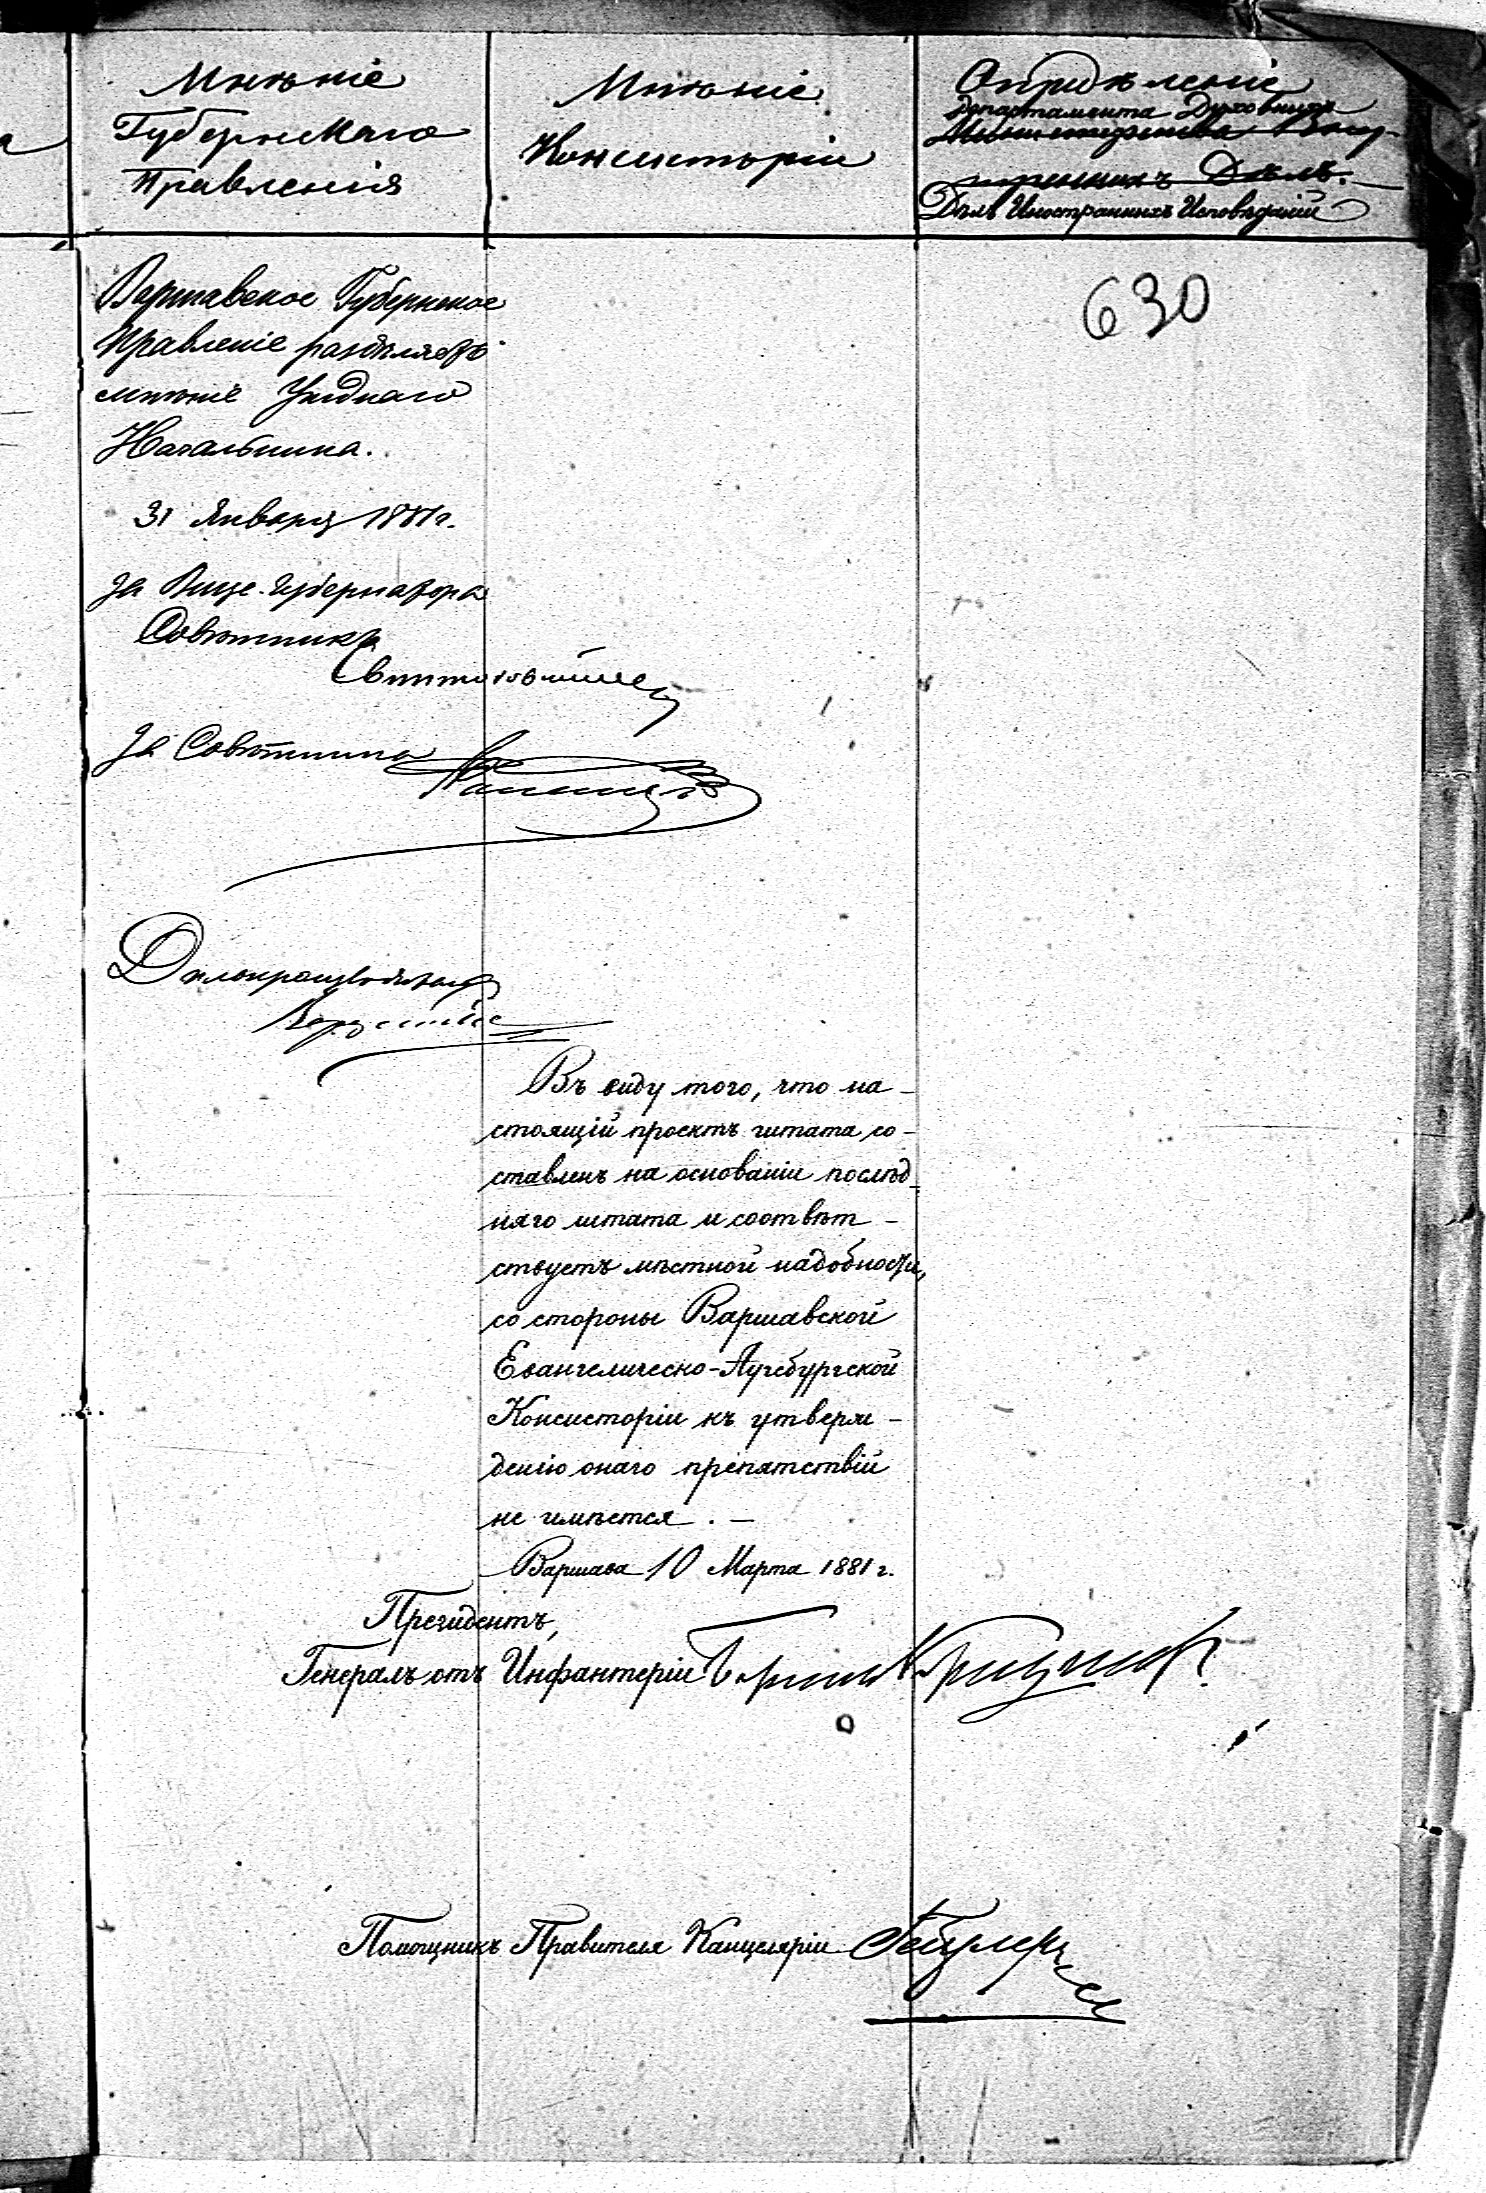 Мнѣніе
Губернскаго
Правленія
Мнѣніе
Консисторіи
Опредѣленіе
Департамента Духовныхъ
Министерства Внут-
реннихъ Дѣлъ.
Дѣлъ Иностранныхъ Исповѣданій
630
Варшавское Губернское
Правленіе раздѣляетъ
мнѣніе Уѣзднаго
Начальника.
31 Января 1881 г.
За Вице-Губернатора
Совѣтникъ
За Совѣтника
Дѣлопроизводитель
Въ виду того, что на-
стоящій проектъ штата со-
ставленъ на основаніи послѣд-
няго штата и соотвѣт-
ствуетъ мѣстной надобности,
со стороны Варшавской
Евангелическо-Аугсбургской
Консисторіи къ утверж-
денію онаго препятствій
не имѣется. —
Варшава 10 Марта 1881 г.
Президентъ,
Генералъ отъ Инфантеріи
Помощникъ Правителя Канцеляріи